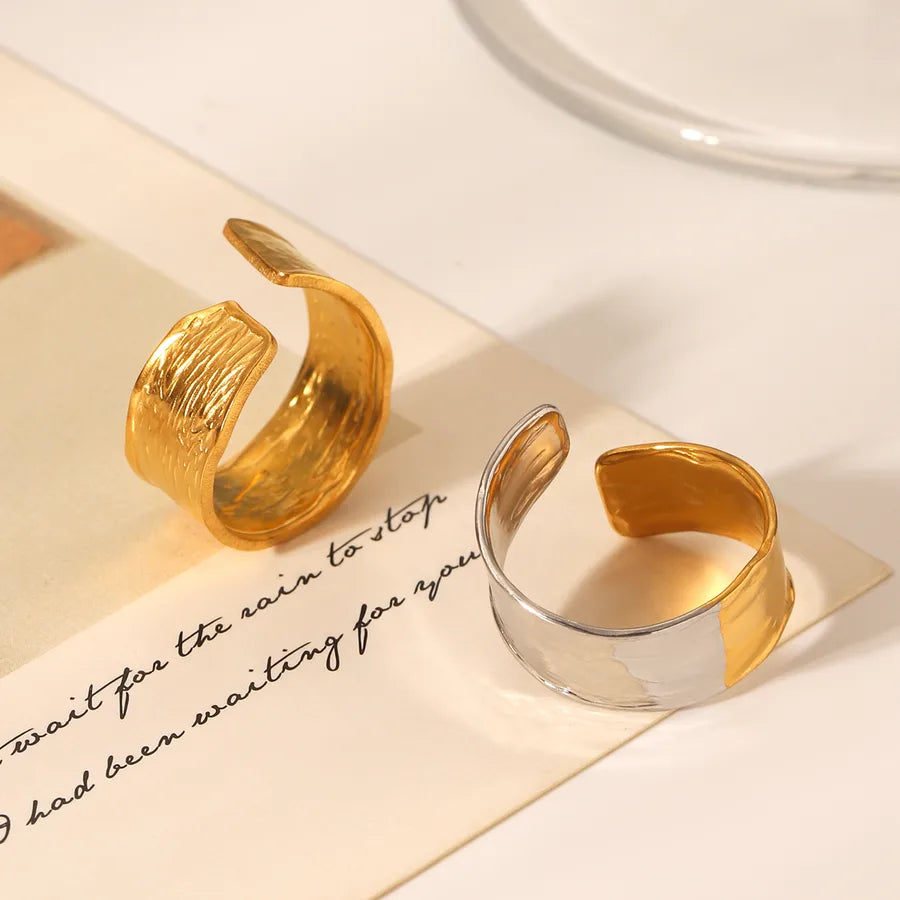 wait for the rain to stop
I had been waiting for you